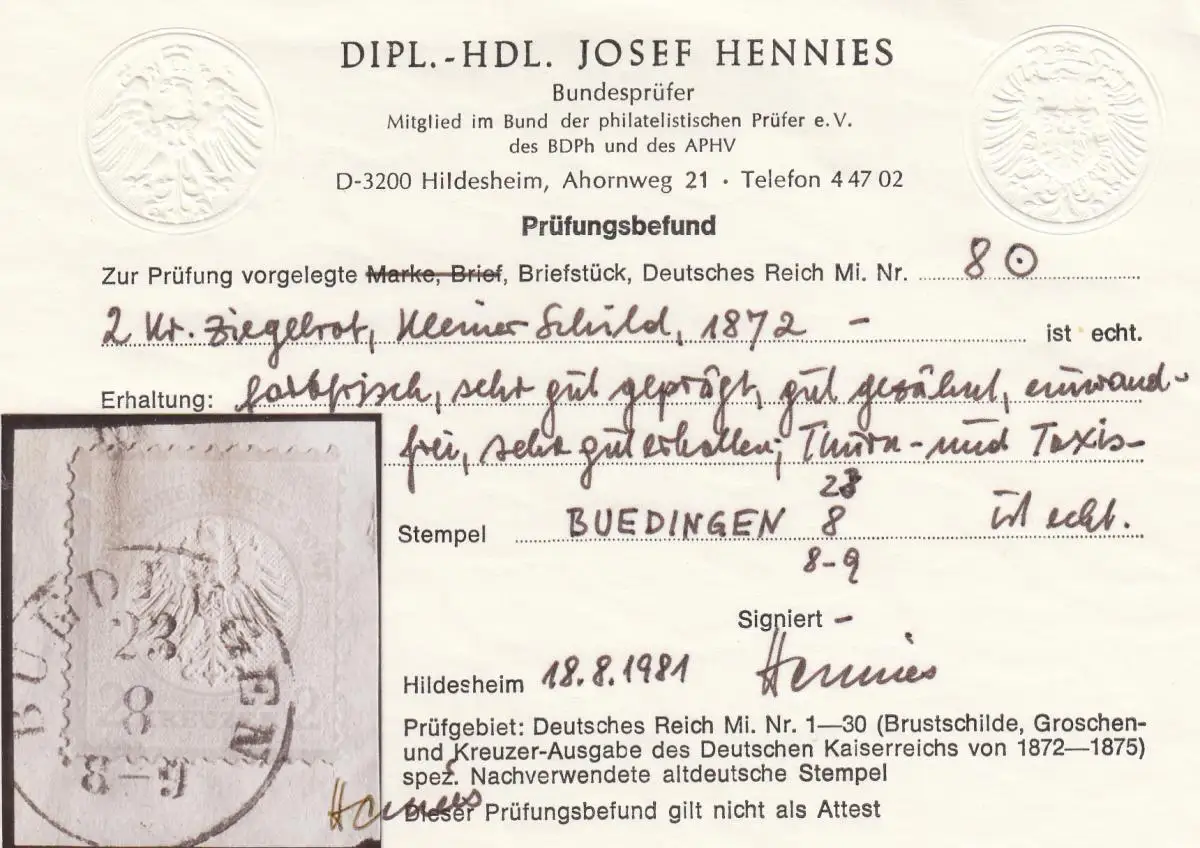 DIPL.-HDL. JOSEF HENNIES
Bundesprüfer
Mitglied im Bund der philatelistischen Prüfer e.V.
des BDPh und des APHV
D-3200 Hildesheim, Ahornweg 21 · Telefon 4 47 02
Prüfungsbefund
Zur Prüfung vorgelegte Marke, Brief, Briefstück, Deutsches Reich Mi. Nr. 8 ⊙
2 Kr. ziegelrot, kleiner Schild, 1872 – ist echt.
Erhaltung: farbfrisch, sehr gut geprägt, gut gezähnt, einwand-
frei, sehr gut erhalten; Thurn- und Taxis-
23
Stempel BUEDINGEN 8 ist echt.
8-9
Signiert –
Hildesheim 18.8.1981 Hennies
Prüfgebiet: Deutsches Reich Mi. Nr. 1—30 (Brustschilde, Groschen-
und Kreuzer-Ausgabe des Deutschen Kaiserreichs von 1872—1875)
spez. Nachverwendete altdeutsche Stempel
Dieser Prüfungsbefund gilt nicht als Attest
BUEDINGEN
23
8
8-9
2 KREUZER 2
Hennies